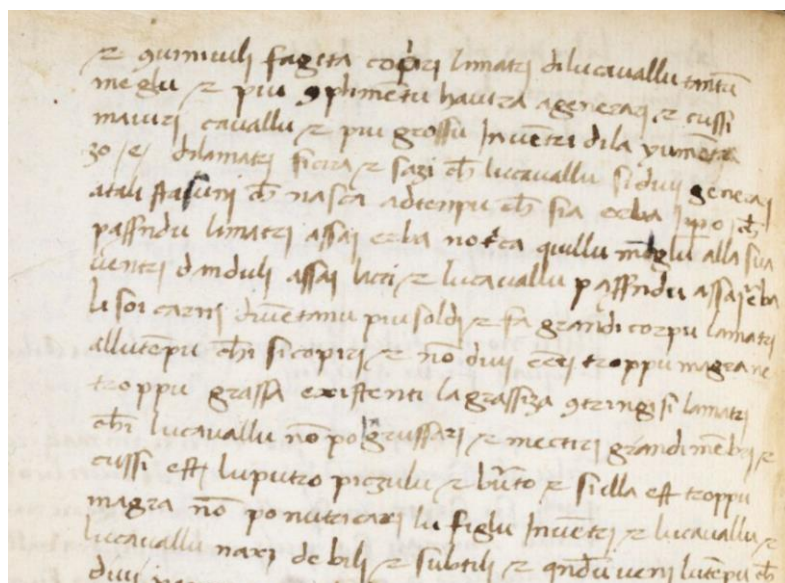 et quiniuili fagita cop̃ri limatri dilucauallu tantu
meglu et piu 9plimẽtu haura agenerari et cussi
mauiri cauallu et piu grossu Inuẽtri dila yumẽta
30 /e/ dilamatri sicza et sazi ch̃ lucauallu sidiui generari
atali stasuni ch̃ nasca adtenpu ch̃ sia erba Ipo ch̃
passendu limatri assai erba notca quillu meglu alla sua
uentri danduli assai lacti et lucauallu passendu assai erba
li soi carni diuẽtanu piu soldi et fa grandi corpu lamatri
allutẽpu ch̃i sicopiri et nõ diui ẽeri troppu magra ne
troppu grassa existenti lagrassiza 9tringisi lamatri
ch̃i lucauallu nõ po Igrussari et mectiri grandi mẽbri et
cussi est luputro piczulu et bruto et si ella est troppu
magra nõ po nutricari lu figlu Inuẽtri et lucauallu et
lucauallu naxi debili et subtili et qñdu ueni lutẽpu ch̃
diui